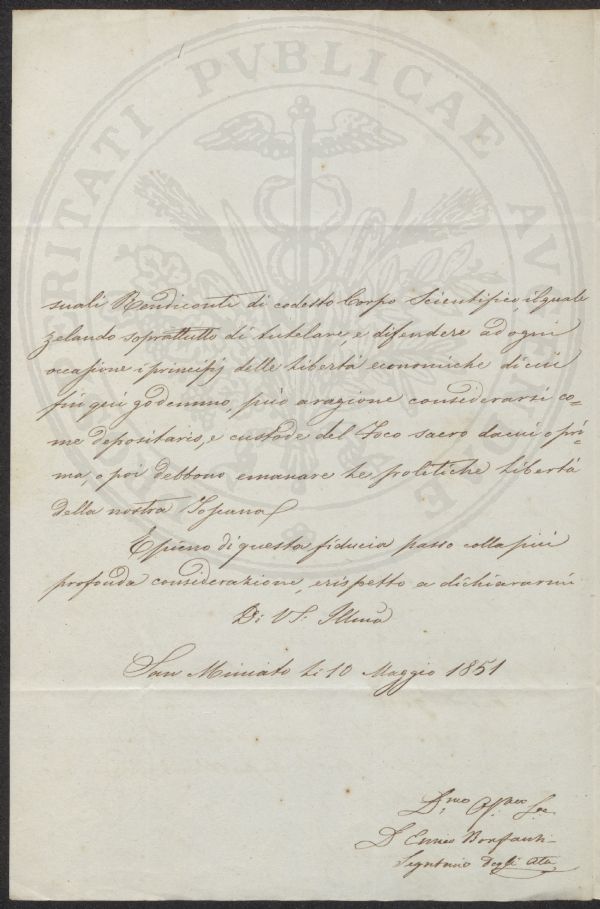 PROSPERITATI PVBLICAE AVGENDAE
suali Rendiconti di codesto Corpo Scientifico, il quale
zelando soprattutto di tutelare, e difendere ad ogni
occasione i principj delle libertà economiche di cui
fin quì godemmo, può a ragione considerarsi co=
me depositario, e custode del Foco sacro da cui o pri=
ma, o poi debbono emanare le politiche libertà
della nostra Toscana
E pieno di questa fiducia passo colla più
profonda considerazione, e rispetto a dichiararmi
Di VS. Illma
San Miniato li 10 Maggio 1851
D.mo
D Ennio Bonfanti
Segretario degli